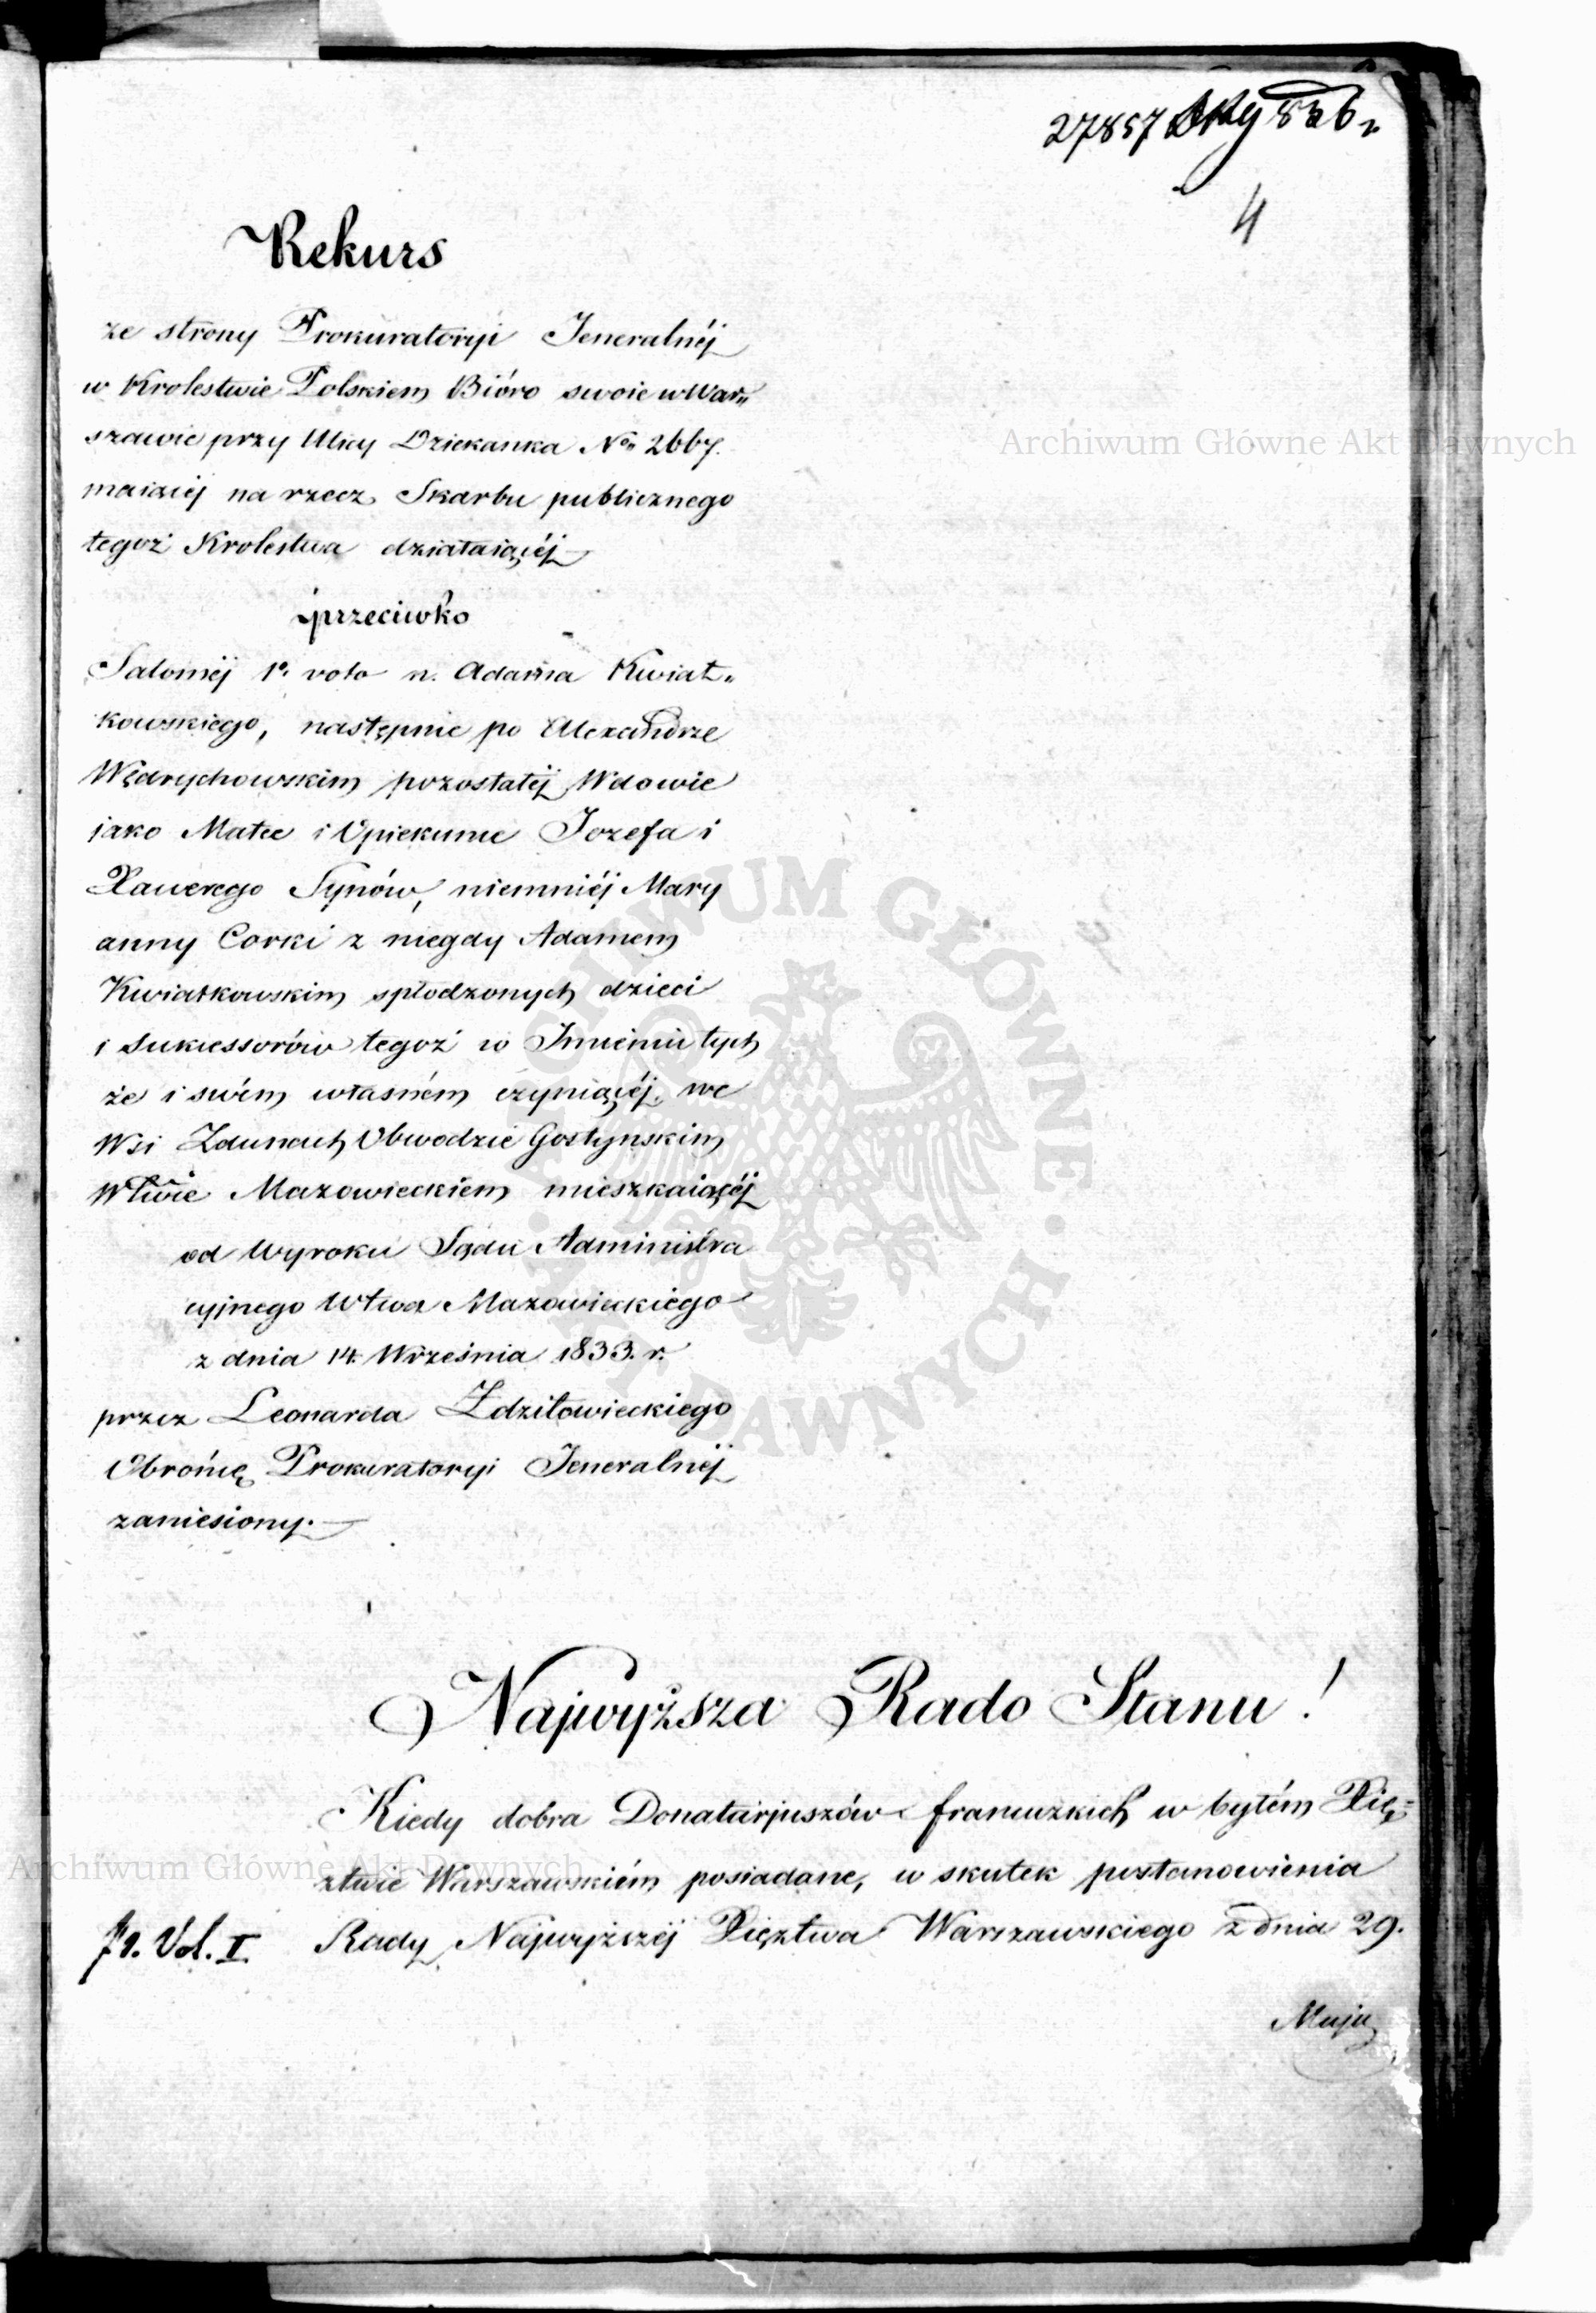 27857
4
Rekurs
ze strony Prokuratoryi Jeneralnéj
w Krolestwie Polskiem Bióro swoie w War„
szawie przy Ulicy Dziekanka No 2667.
maiącéj na rzecz Skarbu publicznego
tegoż Krolestwa działaiącéj
przeciwko
Saloméj 1o voto n. Adama Kwiat„
kowskiego, następnie po Alexandrze
Wędrychowskim pozostałéj Wdowie
jako Matce i Opiekunce Jozefa i
Xawerego Synów, niemniéj Mary
anny Corki z niegdy Adamem
Kwiatkowskim spłodzonych dzieci
i Sukcessorów tegoż w Imieniu tych
że i swém własném czyniącéj, we
Wsi Zdunach Obwodzie Gostynskim
Wtwie Mazowieckiem mieszkaiącéj
od Wyroku Sądu Administra
cyjnego Wtwa Mazowieckiego
z dnia 14. Września 1833. r.
przez Leonarda Zdzitowieckiego
Obrońcę Prokuratoryi Jeneralnéj
zaniesiony.
Najwyższa Rado Stanu!
Kiedy dobra Donatarjuszów francuzkich w byłém Xię=
ztwie Warszawskiém posiadane, w skutek postanowienia
f1. Vol. I. Rady Najwyższéj Xięztwa Warszawskiego z dnia 29.
Maja
Archiwum Główne Akt Dawnych
Archiwum Główne Akt Dawnych
ARCHIWUM GŁÓWNE
AKT DAWNYCH